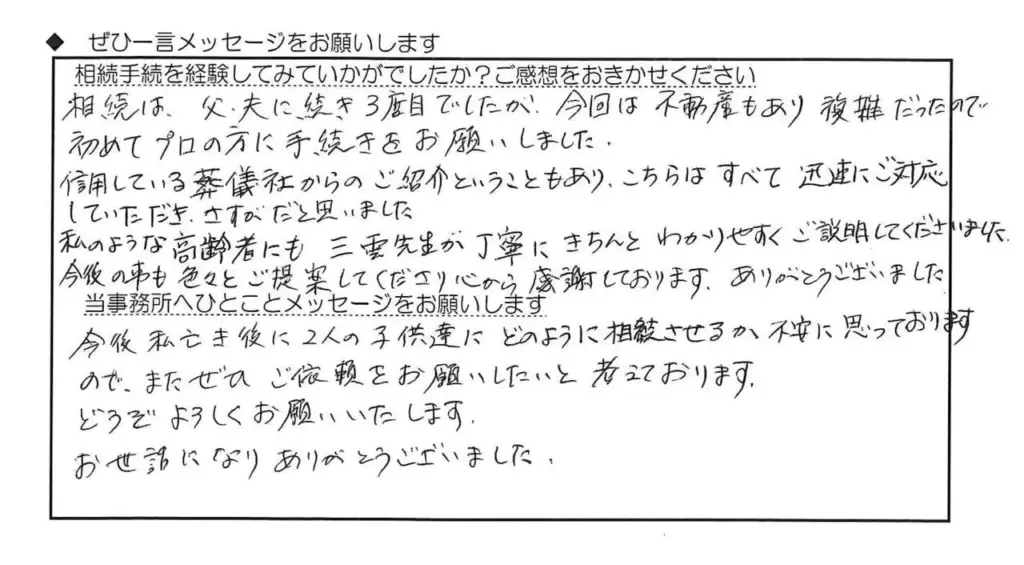 ◆ ぜひ一言メッセージをお願いします
相続手続を経験してみていかがでしたか？ご感想をおきかせください
相続は、父・夫に続き3度目でしたが、今回は不動産もあり複雑だったので
初めてプロの方に手続きをお願いしました.
信用している葬儀社からのご紹介ということもあり、こちらはすべて迅速にご対応
していただき、さすがだと思いました
私のような高齢者にも三雲先生が丁寧にきちんとわかりやすくご説明してくださいました.
今後の事も色々とご提案してくださり心から感謝しております. ありがとうございました
当事務所へひとことメッセージをお願いします
今後私亡き後に2人の子供達にどのように相続させるか、不安に思っております
ので、またぜひご依頼をお願いしたいと考えております.
どうぞよろしくお願いいたします.
お世話になりありがとうございました.